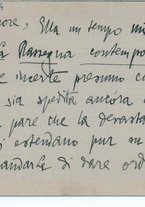 4
ore, Ella un tempo mi
la Rassegna contempo
e incerte presumo c
sia spedita ancóra
pare che la devasta
estendano pur su
andarle di dare ord